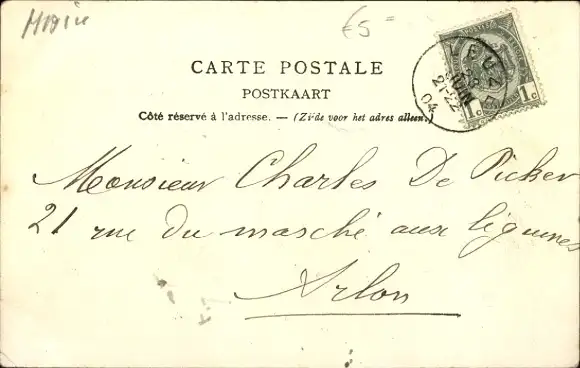 €5=
CARTE POSTALE
POSTKAART
Côté réservé à l'adresse. — (Zijde voor het adres alleen.)
LEUZE
28
JUIN
21-22
04
1c 1c
Monsieur Charles De Picker
21 rue du marché aux légumes
Arlon